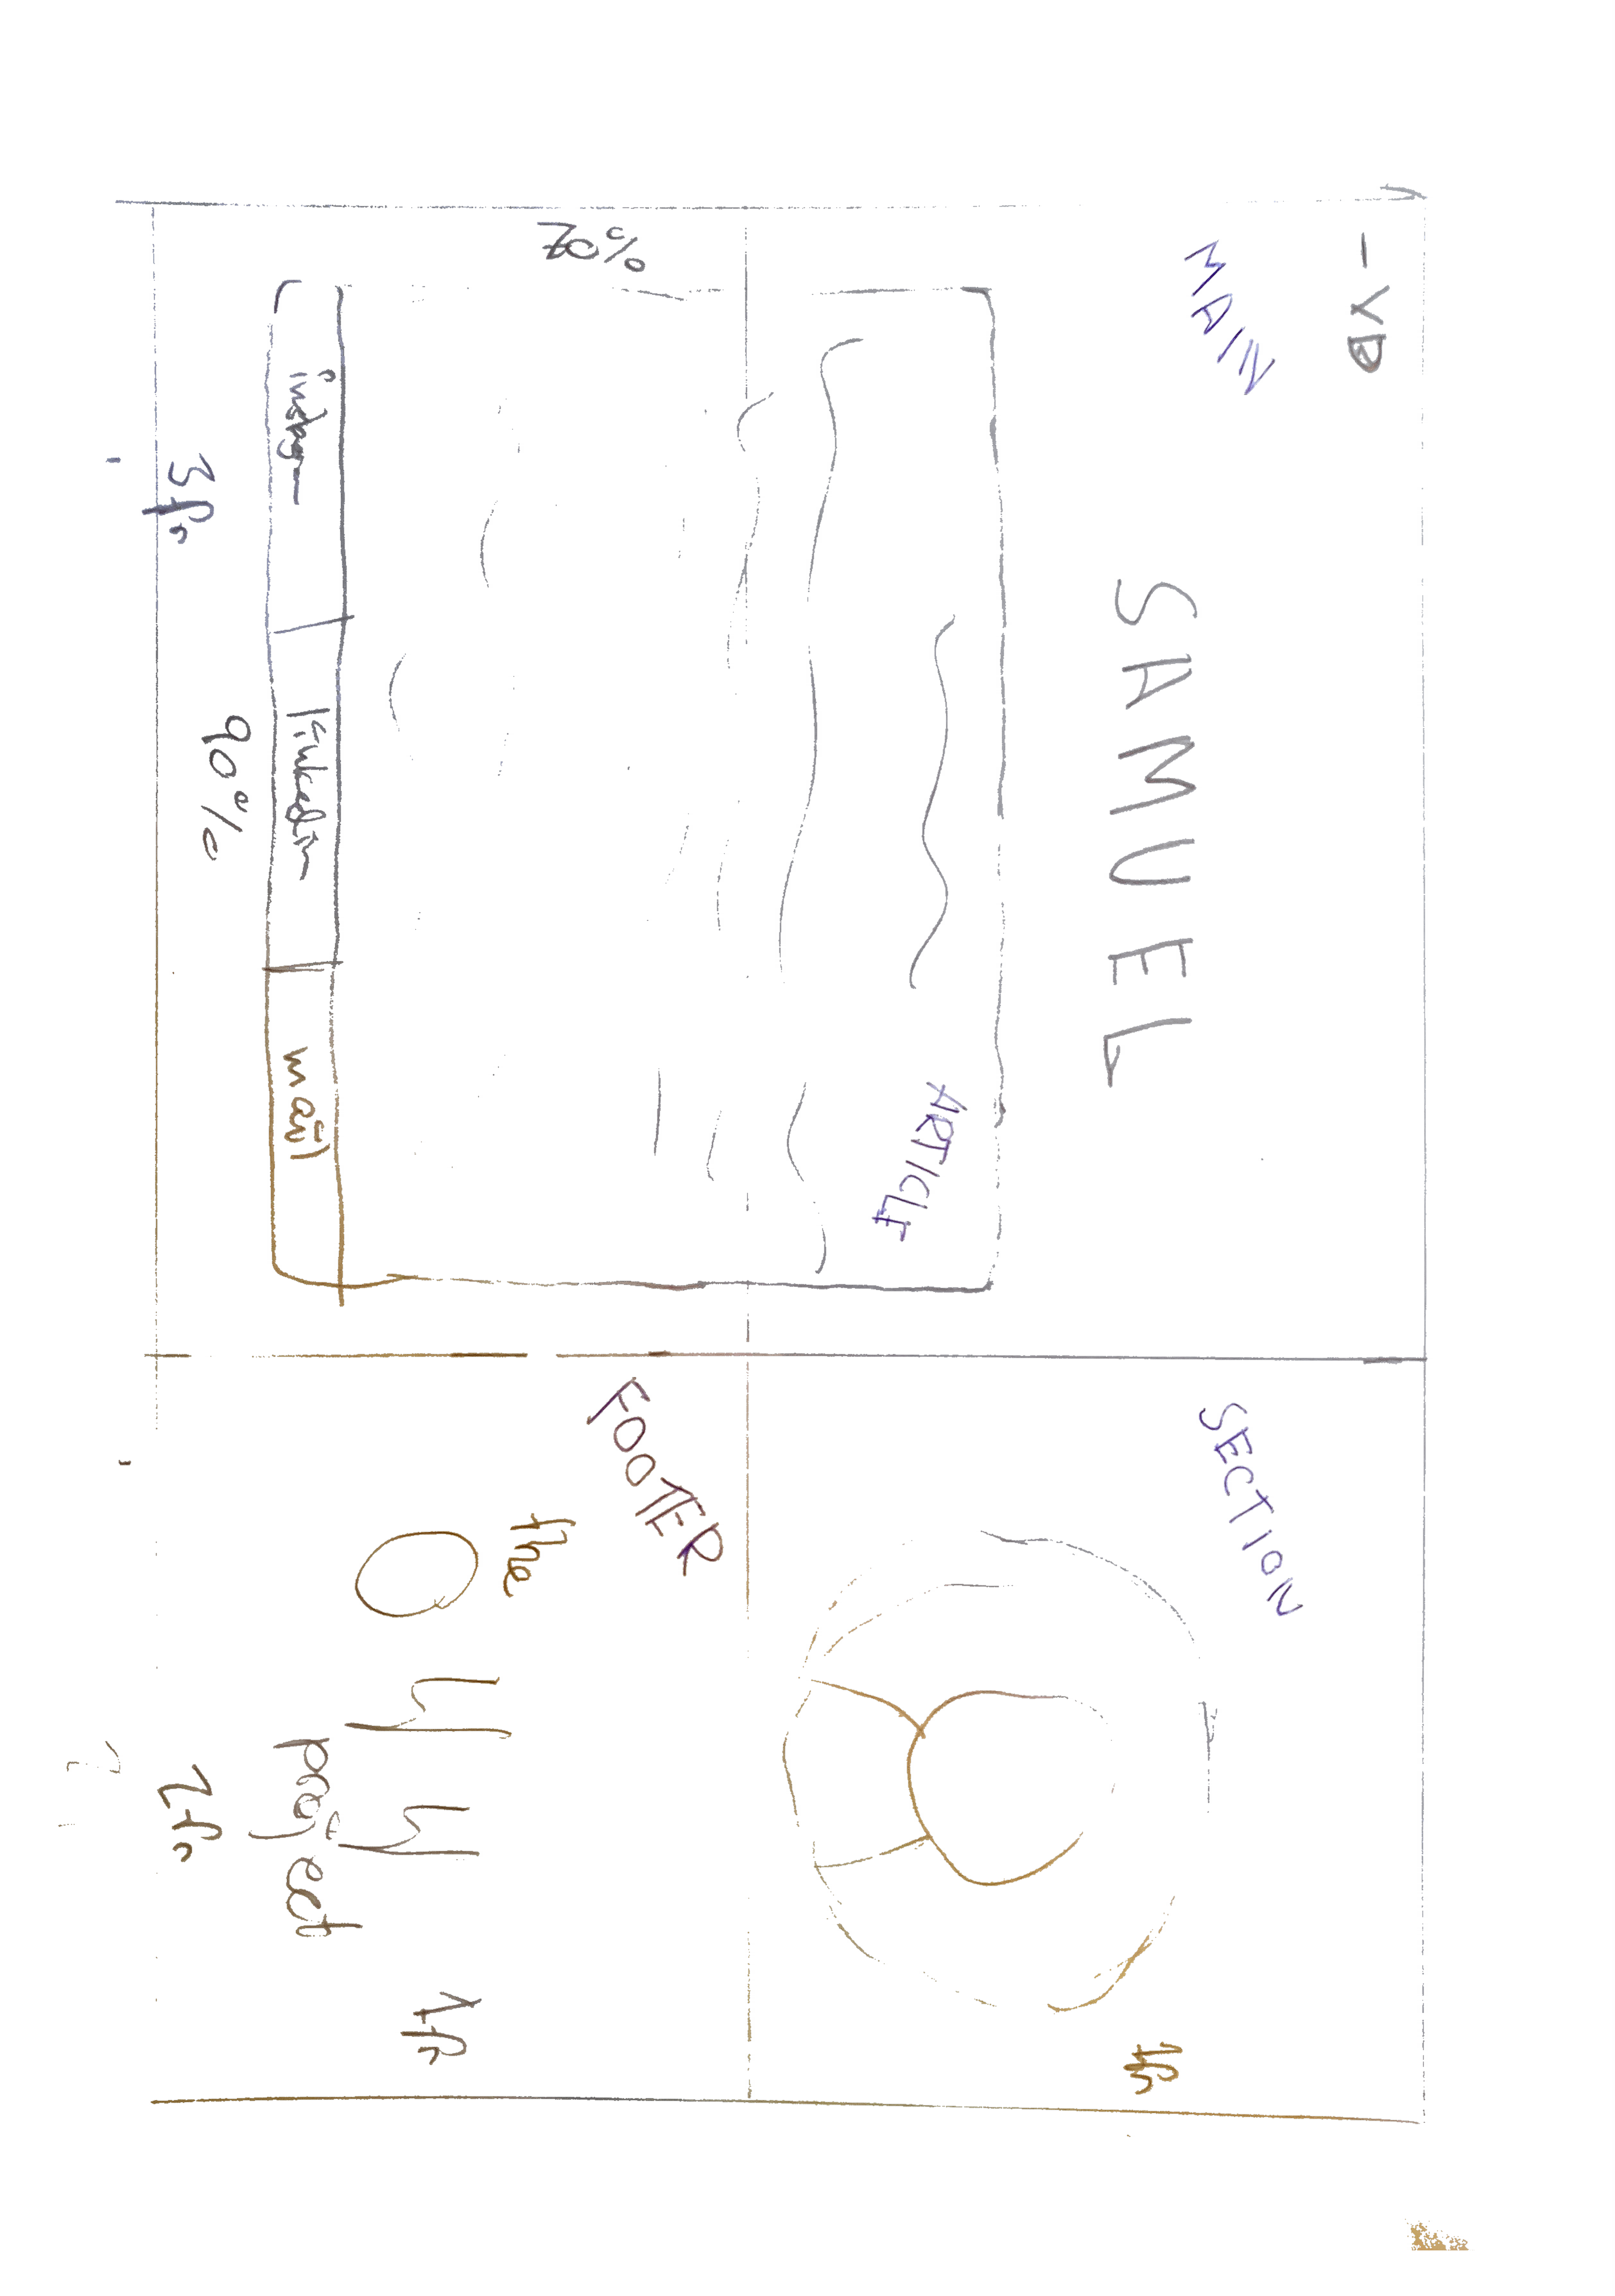 MAIN
SAMUEL
ARTICLE
70%
linkedin
mail
90%
3fr
SECTION
1fr
FOOTER
the
project
1fr
2fr